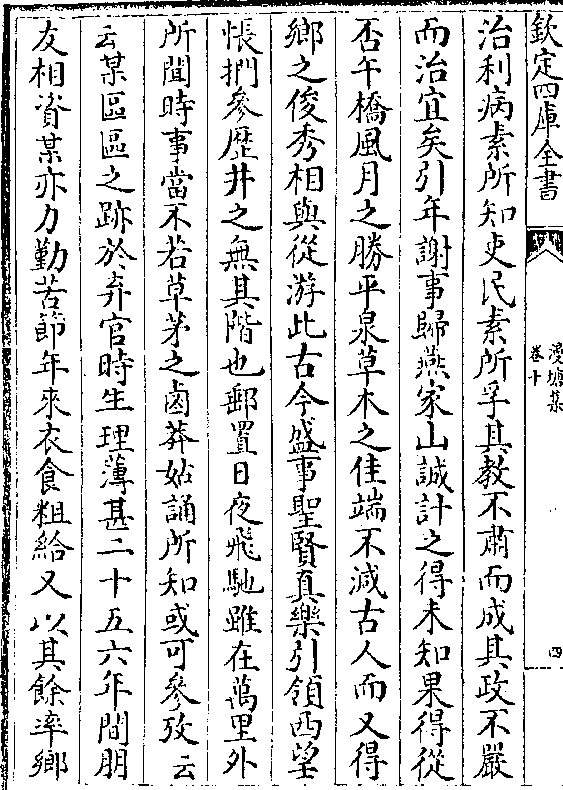 欽定四庫全書
漫塘集
卷十
四
治利病素所知吏民素所孚其教不肅而成其政不嚴
而治宜矣引年謝事歸燕家山誠計之得未知果得從
否午橋風月之勝平泉草木之佳端不減古人而又得
鄉之俊秀相與從游此古今盛事聖賢真樂引領西望
悵捫參歷井之無其階也郵置日夜飛馳雖在萬里外
所聞時事當不若草茅之鹵莽姑誦所知或可參攷云
云某區區之跡於弃官時生理薄甚二十五六年間朋
友相資某亦力勤苦節年來衣食粗給又以其餘率鄉